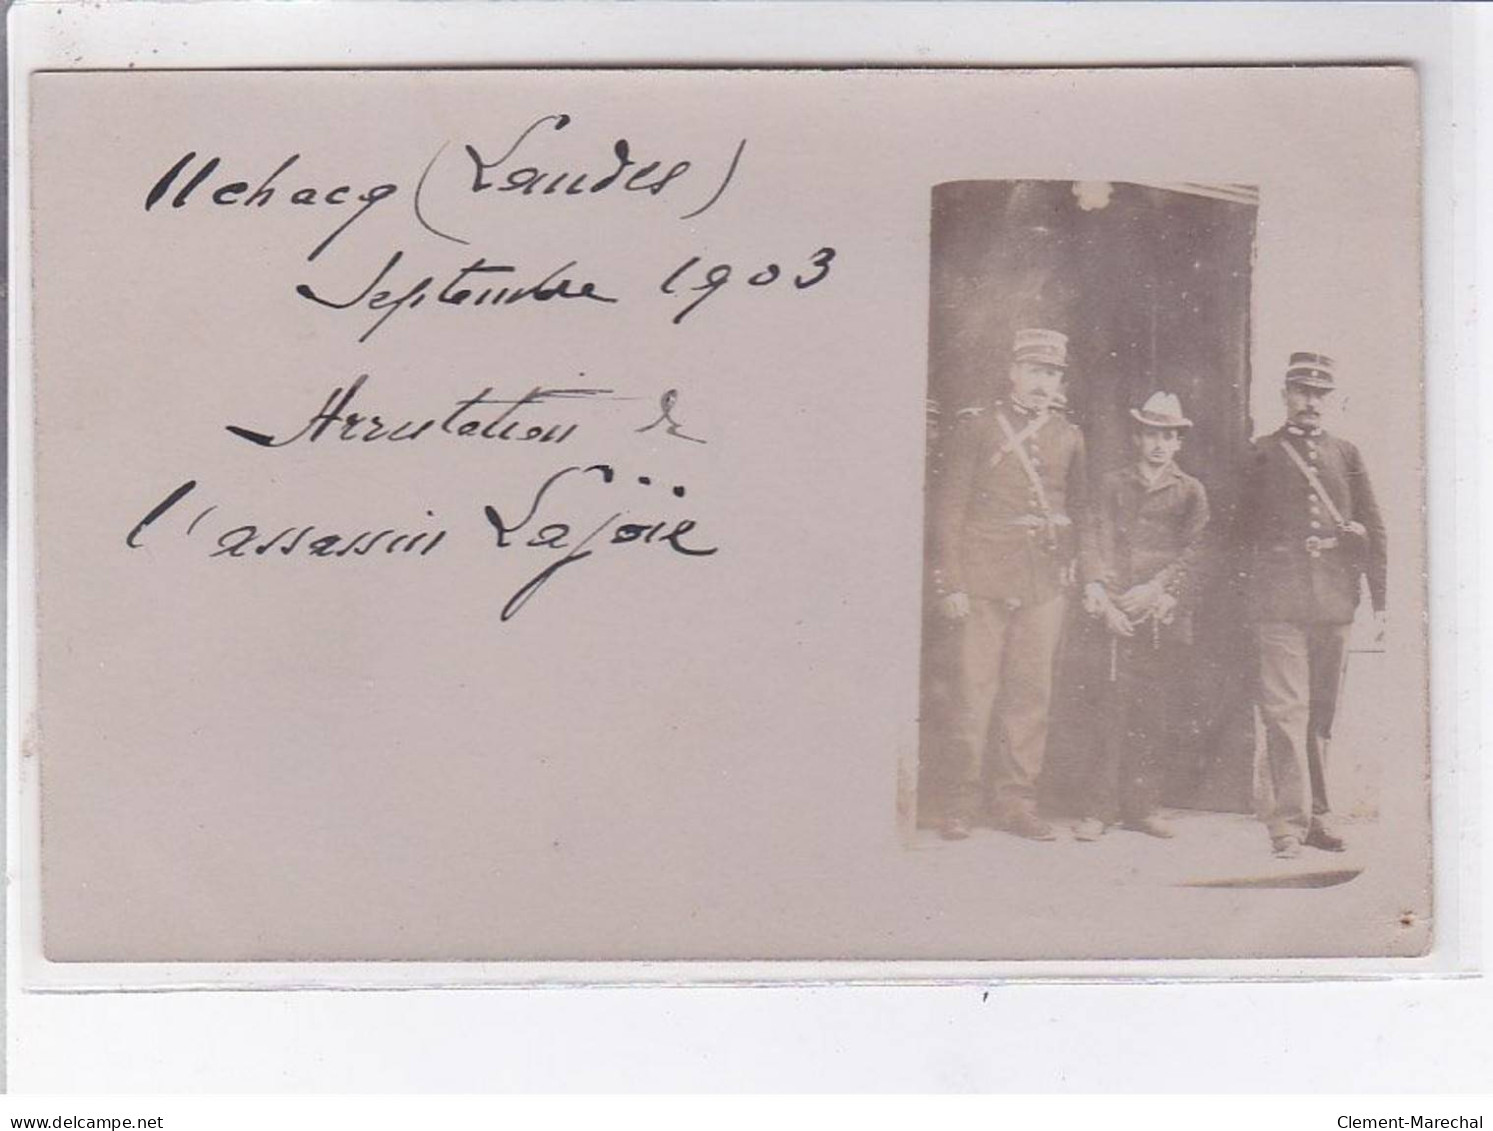 Uchacq (Landes)
Septembre 1903
Arrestation de
l'assassin Lajöïe
www.delcampe.net
Clement-Marechal